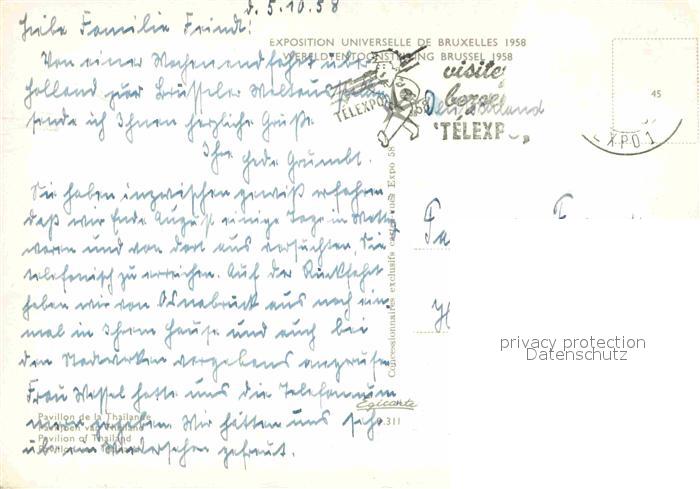 d. 5.10.58
Liebe Familie Frindt!
Von einer Wochenendfahrt über
Holland zur Brüsseler Weltausstellung
sende ich Ihnen herzliche Grüße
Ihre
Sie haben inzwischen gewiß erfahren
daß wir Ende August einige Tage in
waren und von dort aus versuchten, Sie
telefonisch zu erreichen. Auf der Rückfahrt
haben wir von Osnabrück aus noch ein
mal in Ihrem Hause und auch bei
den Stadtwerken vergebens angerufen
Frau Wessel hatte uns die Telefonnum
mer gegeben. Wir hätten uns sehr
über ein Wiedersehen gefreut.
EXPOSITION UNIVERSELLE DE BRUXELLES 1958
WERELDTENTOONSTELLING BRUSSEL 1958
visitez
bezoekt
TÉLEXPO
58
"TÉLEXPO"
Deutschland
45
EXPO 1
Fa
F
H
Concessionnaires exclusifs cartes vues Expo 58
Egicarte
311
Pavillon de la Thaïlande
Paviljoen van Thailand
Pavilion of Thailand
privacy protection
Datenschutz